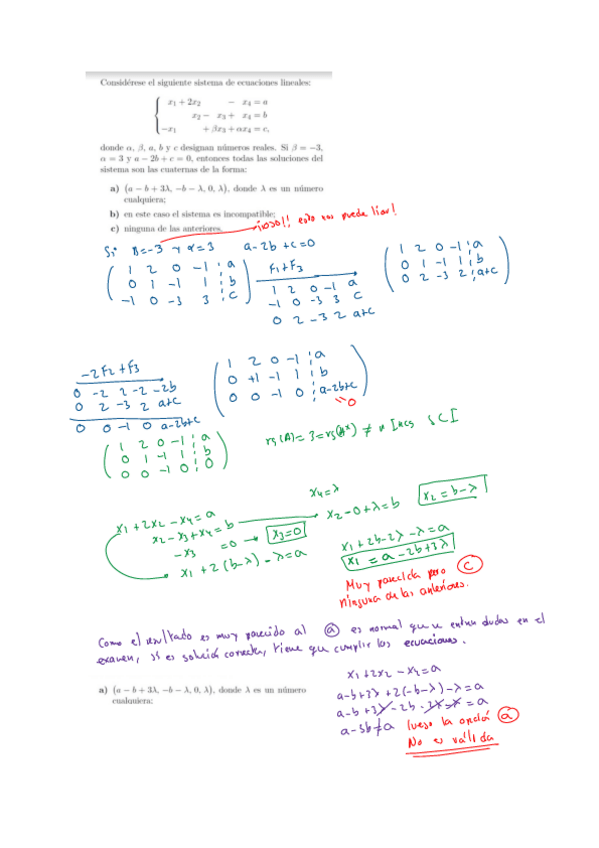 Considérese el siguiente sistema de ecuaciones lineales:
x₁ + 2x₂ − x₄ = a
x₂ − x₃ + x₄ = b
−x₁ + βx₃ + αx₄ = c,
donde α, β, a, b y c designan números reales. Si β = −3,
α = 3 y a − 2b + c = 0, entonces todas las soluciones del
sistema son las cuaternas de la forma:
a) (a − b + 3λ, −b − λ, 0, λ), donde λ es un número
cualquiera;
b) en este caso el sistema es incompatible;
c) ninguna de las anteriores.
¡¡OJO!! esto nos puede liar!
Si B=-3 y α=3 a-2b+c=0
1 2 0 -1 | a
0 1 -1 1 | b
-1 0 -3 3 | c
F1+F3
1 2 0 -1 a
-1 0 -3 3 c
0 2 -3 2 a+c
1 2 0 -1 | a
0 1 -1 1 | b
0 2 -3 2 | a+c
-2F2+F3
0 -2 2 -2 -2b
0 2 -3 2 a+c
0 0 -1 0 a-2b+c
1 2 0 -1 | a
0 +1 -1 1 | b
0 0 -1 0 | a-2b+c
"0
1 2 0 -1 | a
0 1 -1 1 | b
0 0 -1 0 | 0
rg(A)=3=rg(A*) ≠ n Incs SCI
x₄=λ
x₁+2x₂-x₄=a
x₂-x₃+x₄=b
-x₃ =0 → x₃=0
x₁+2(b-λ)-λ=a
x₂-0+λ=b
x₂=b-λ
x₁+2b-2λ-λ=a
x₁=a-2b+3λ
Muy parecida pero c
ninguna de las anteriores.
Como el resultado es muy parecido al a es normal que entran dudas en el
examen, si es solución correcta, tiene que cumplir las ecuaciones.
a) (a − b + 3λ, −b − λ, 0, λ), donde λ es un número
cualquiera;
x₁+2x₂-x₄=a
a-b+3λ+2(-b-λ)-λ=a
a-b+3λ-2b-2λ-λ=a
a-3b≠a luego la opción a
No es válida